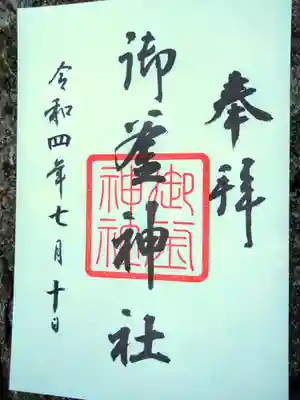 奉拝
御釜神社
令和四年七月十日
御釜神社